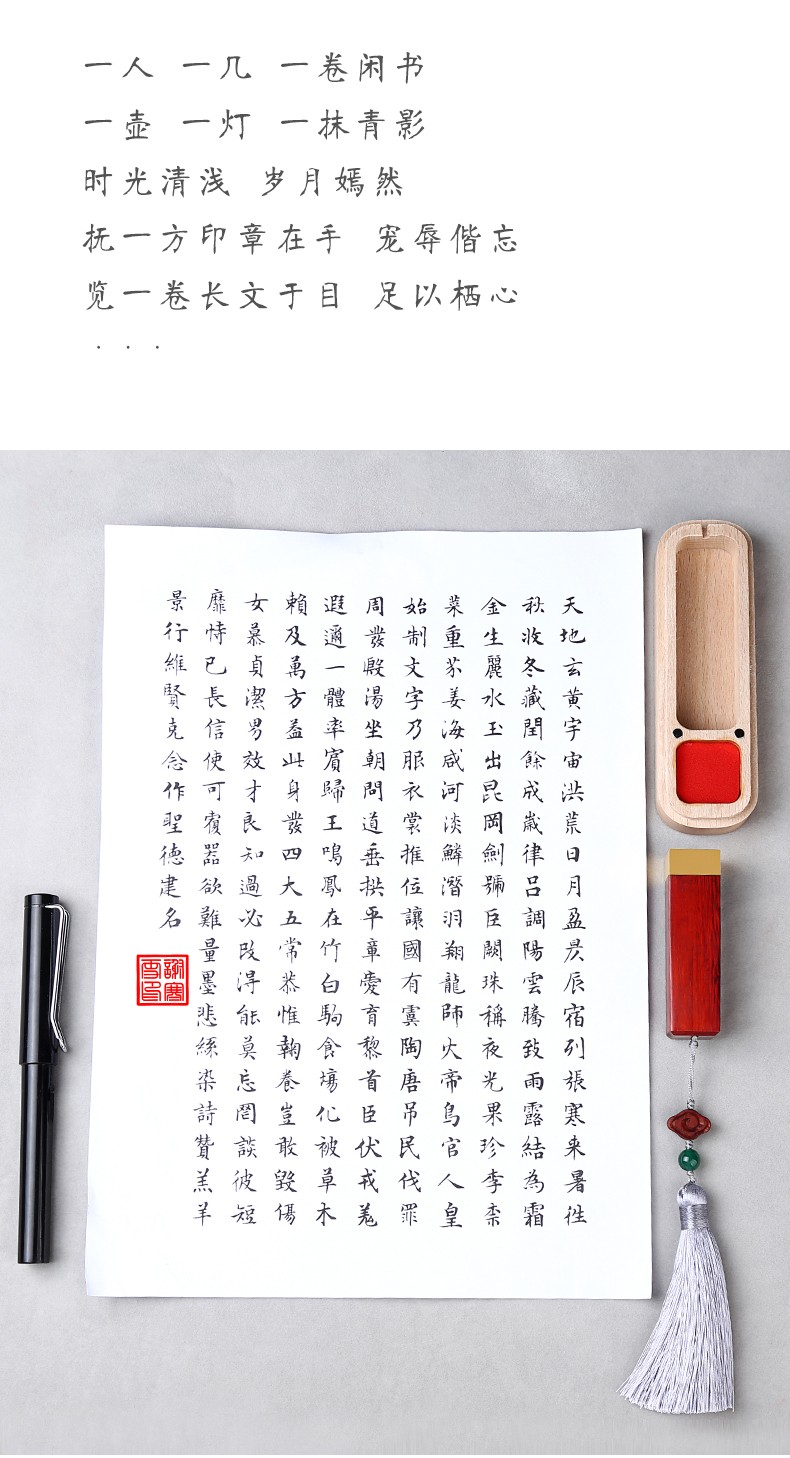 一人 一几 一卷闲书
一壶 一灯 一抹青影
时光清浅 岁月嫣然
抚一方印章在手 宠辱偕忘
览一卷长文于目 足以栖心
· · ·
天地玄黃宇宙洪荒日月盈昃辰宿列張寒来暑往
秋收冬藏閏餘成歲律吕調陽雲騰致雨露結為霜
金生麗水玉出昆岡劍號巨闕珠稱夜光果珍李柰
菜重芥姜海咸河淡鱗潛羽翔龍師火帝鳥官人皇
始制文字乃服衣裳推位讓國有虞陶唐吊民伐罪
周發殷湯坐朝問道垂拱平章愛育黎首臣伏戎羌
遐邇一體率賓歸王鳴鳳在竹白駒食場化被草木
賴及萬方蓋此身發四大五常恭惟鞠養豈敢毀傷
女慕貞潔男效才良知過必改得能莫忘罔談彼短
靡恃己長信使可覆器欲難量墨悲絲染詩贊羔羊
景行維賢克念作聖德建名
謝